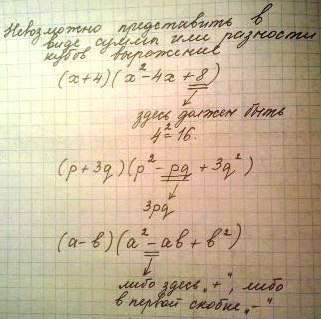 Невозможно представить в
виде суммы или разности
кубов выражение
(x+4)(x²-4x+8)
здесь должен быть
4²=16.
(p+3q)(p²-pq+3q²)
3pq
(a-в)(a²-aв+в²)
либо здесь „+“, либо
в первой скобке „-“